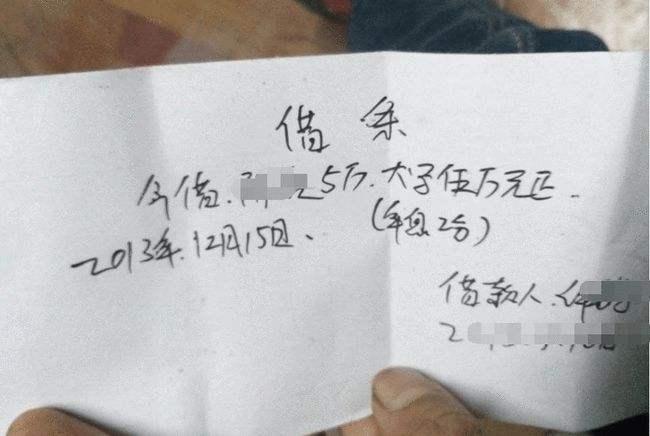 借条
今借. 5万. 大写伍万元正.
2013年.12月15日、(年息2分)
借款人.
2